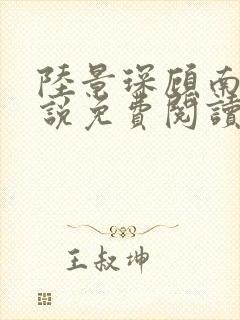 陸景琛顧南
說免費閱讀
王叔坤